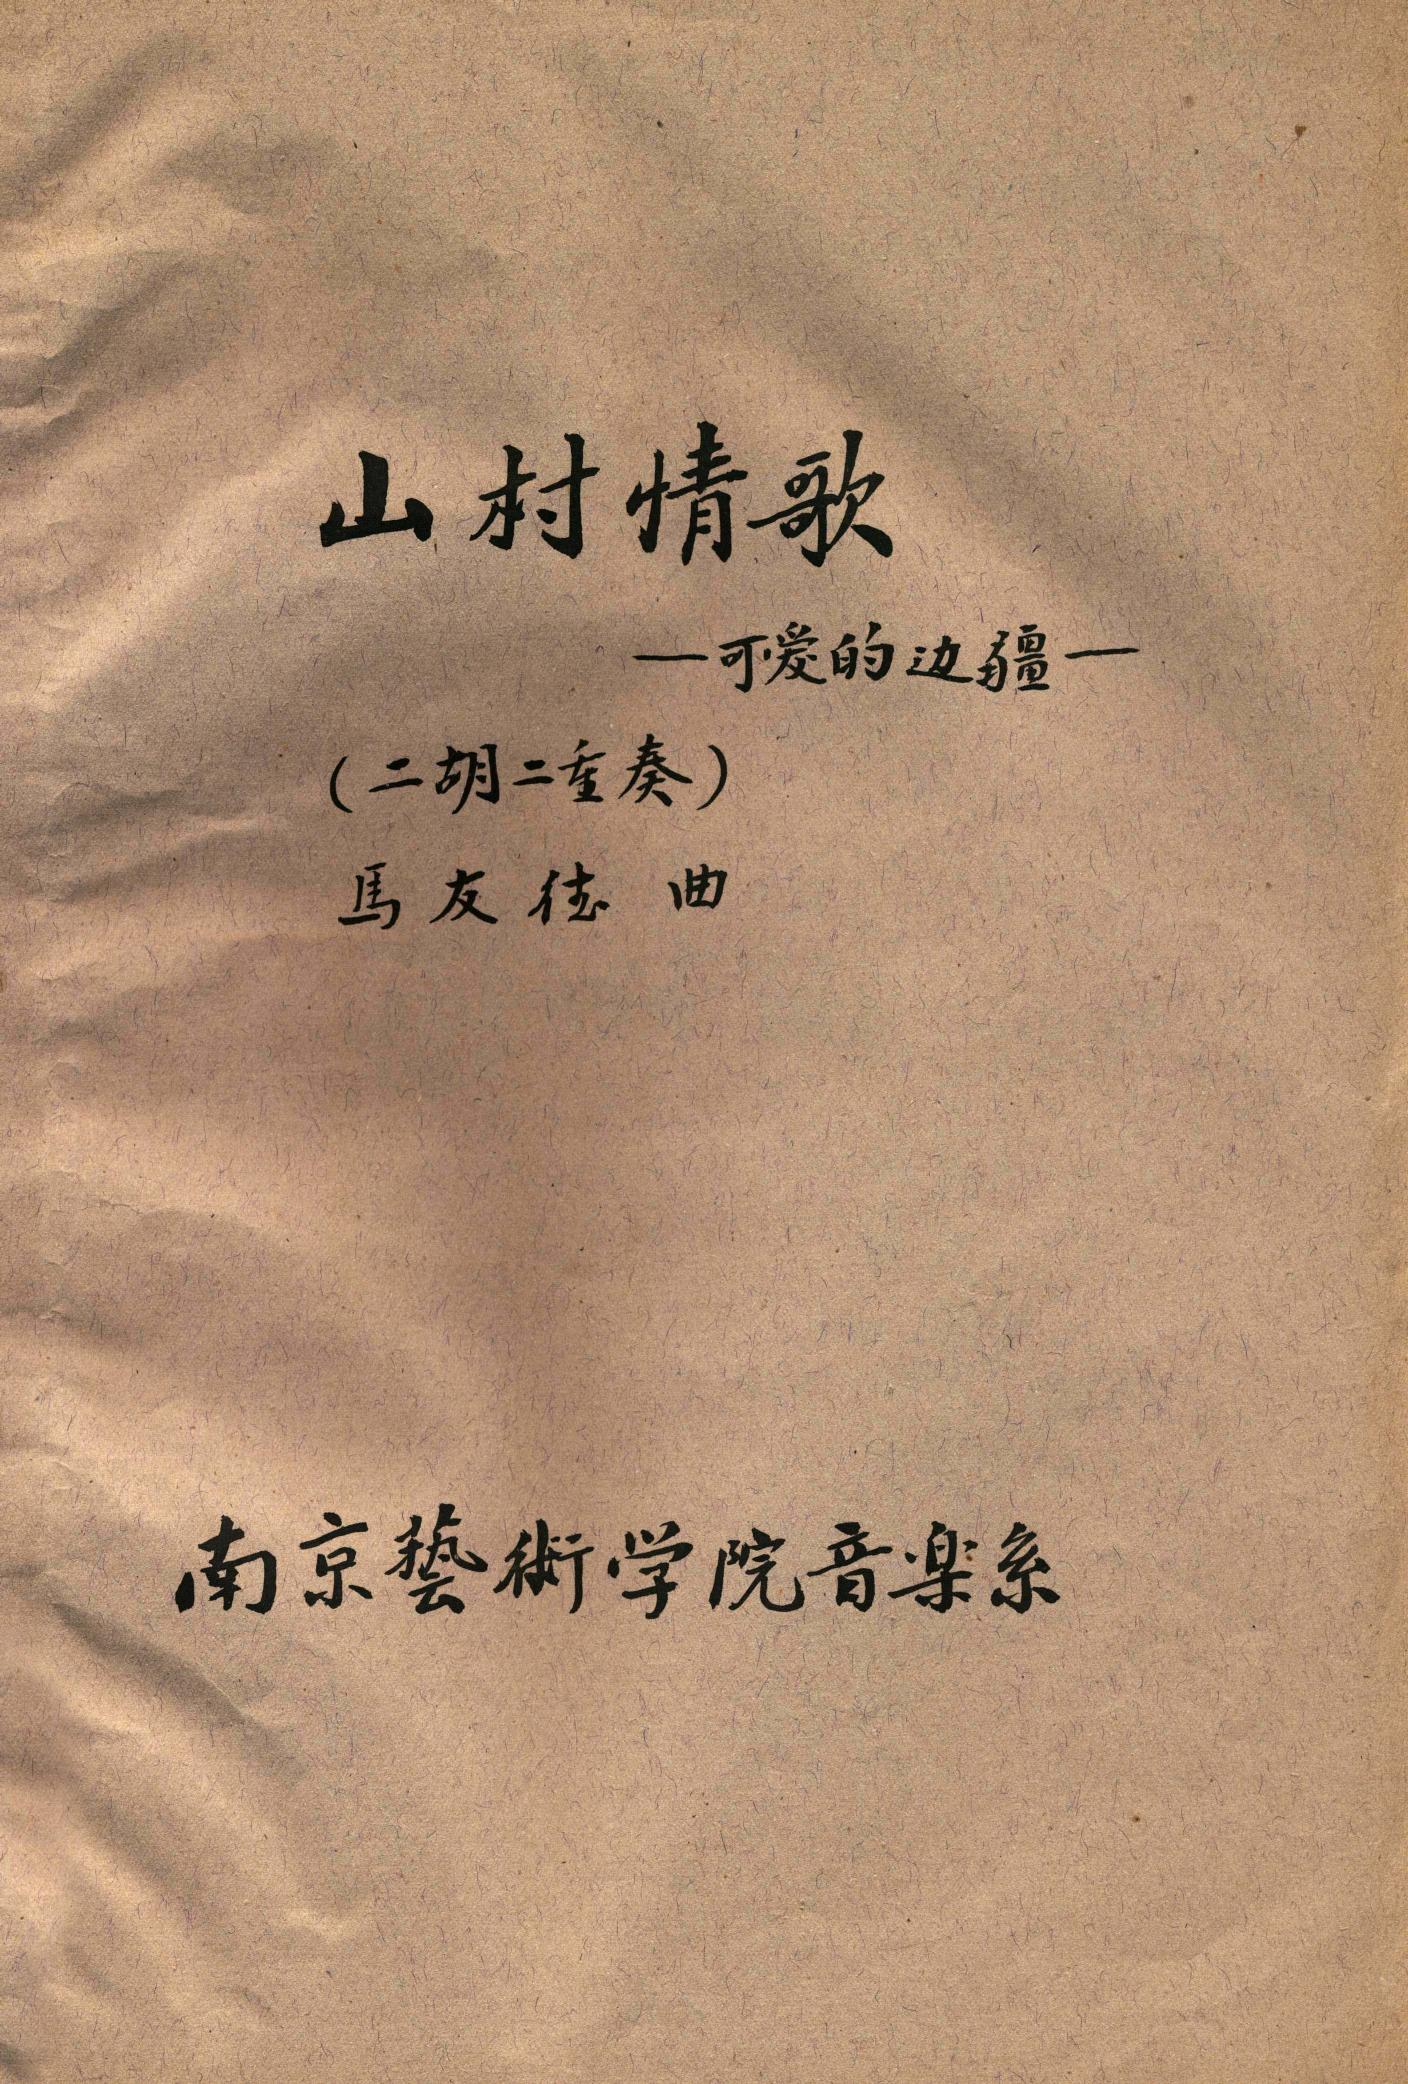 山村情歌
—可爱的边疆—
(二胡二重奏)
馬友德 曲
南京藝術学院音楽系